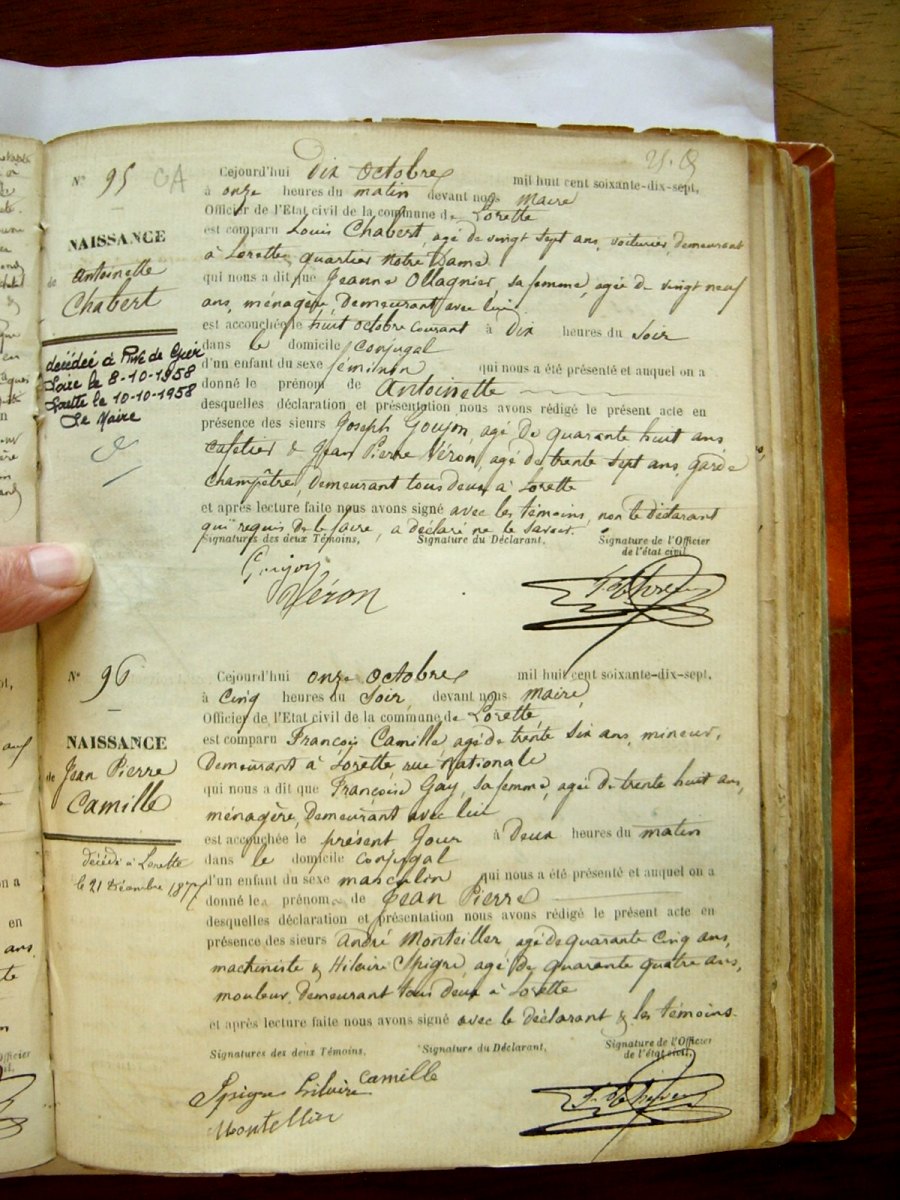 N° 95 CA
NAISSANCE
de Antoinette
Chabert
décédée à Rive de Gier
Loire le 8-10-1958
Lorette le 10-10-1958
Le Maire
Cejourd'hui dix octobre mil huit cent soixante-dix-sept,
à onze heures du matin devant nous maire
Officier de l'Etat civil de la commune de Lorette
est comparu Louis Chabert, agé de vingt sept ans, voiturier, demeurant
à Lorette, quartier Notre Dame
qui nous a dit que Jeanne Ollagnier, sa femme, agée de vingt neuf
ans, ménagère, Demeurant avec lui
est accouchée le huit octobre courant à Dix heures du soir
dans le domicile conjugal
d'un enfant du sexe féminin qui nous a été présenté et auquel on a
donné le prénom de Antoinette
desquelles déclaration et présentation nous avons rédigé le présent acte en
présence des sieurs Joseph Goujon, agé de quarante huit ans
cafetier & Jean Pierre Véron, agé de trente sept ans, garde
champêtre, demeurant tous deux à Lorette
et après lecture faite nous avons signé avec les témoins, non le déclarant
qui requis de le faire, a déclaré ne le savoir.
Signatures des deux Témoins, Signature du Déclarant, Signature de l'Officier
de l'état civil
Goujon
Véron
N° 96
NAISSANCE
de Jean Pierre
Camille
décédé à Lorette
le 21 Décembre 1877
Cejourd'hui onze octobre mil huit cent soixante-dix-sept,
à cinq heures du soir, devant nous maire,
Officier de l'Etat civil de la commune de Lorette
est comparu François Camille, agé de trente six ans, mineur,
Demeurant à Lorette, rue Nationale
qui nous a dit que Françoise Gay, sa femme, agée de trente huit ans,
ménagère, Demeurant avec lui
est accouchée le présent jour à Deux heures du matin
dans le domicile conjugal
d'un enfant du sexe masculin qui nous a été présenté et auquel on a
donné les prénoms de Jean Pierre
desquelles déclaration et présentation nous avons rédigé le présent acte en
présence des sieurs André Monteiller, agé de quarante cinq ans,
machiniste & Hilaire Spigre, agé de quarante quatre ans,
mouleur, demeurant tous deux à Lorette
et après lecture faite nous avons signé avec le déclarant & les témoins.
Signatures des deux Témoins, Signature du Déclarant, Signature de l'Officier
de l'état civil,
Spigre hilaire Camille
Montellier